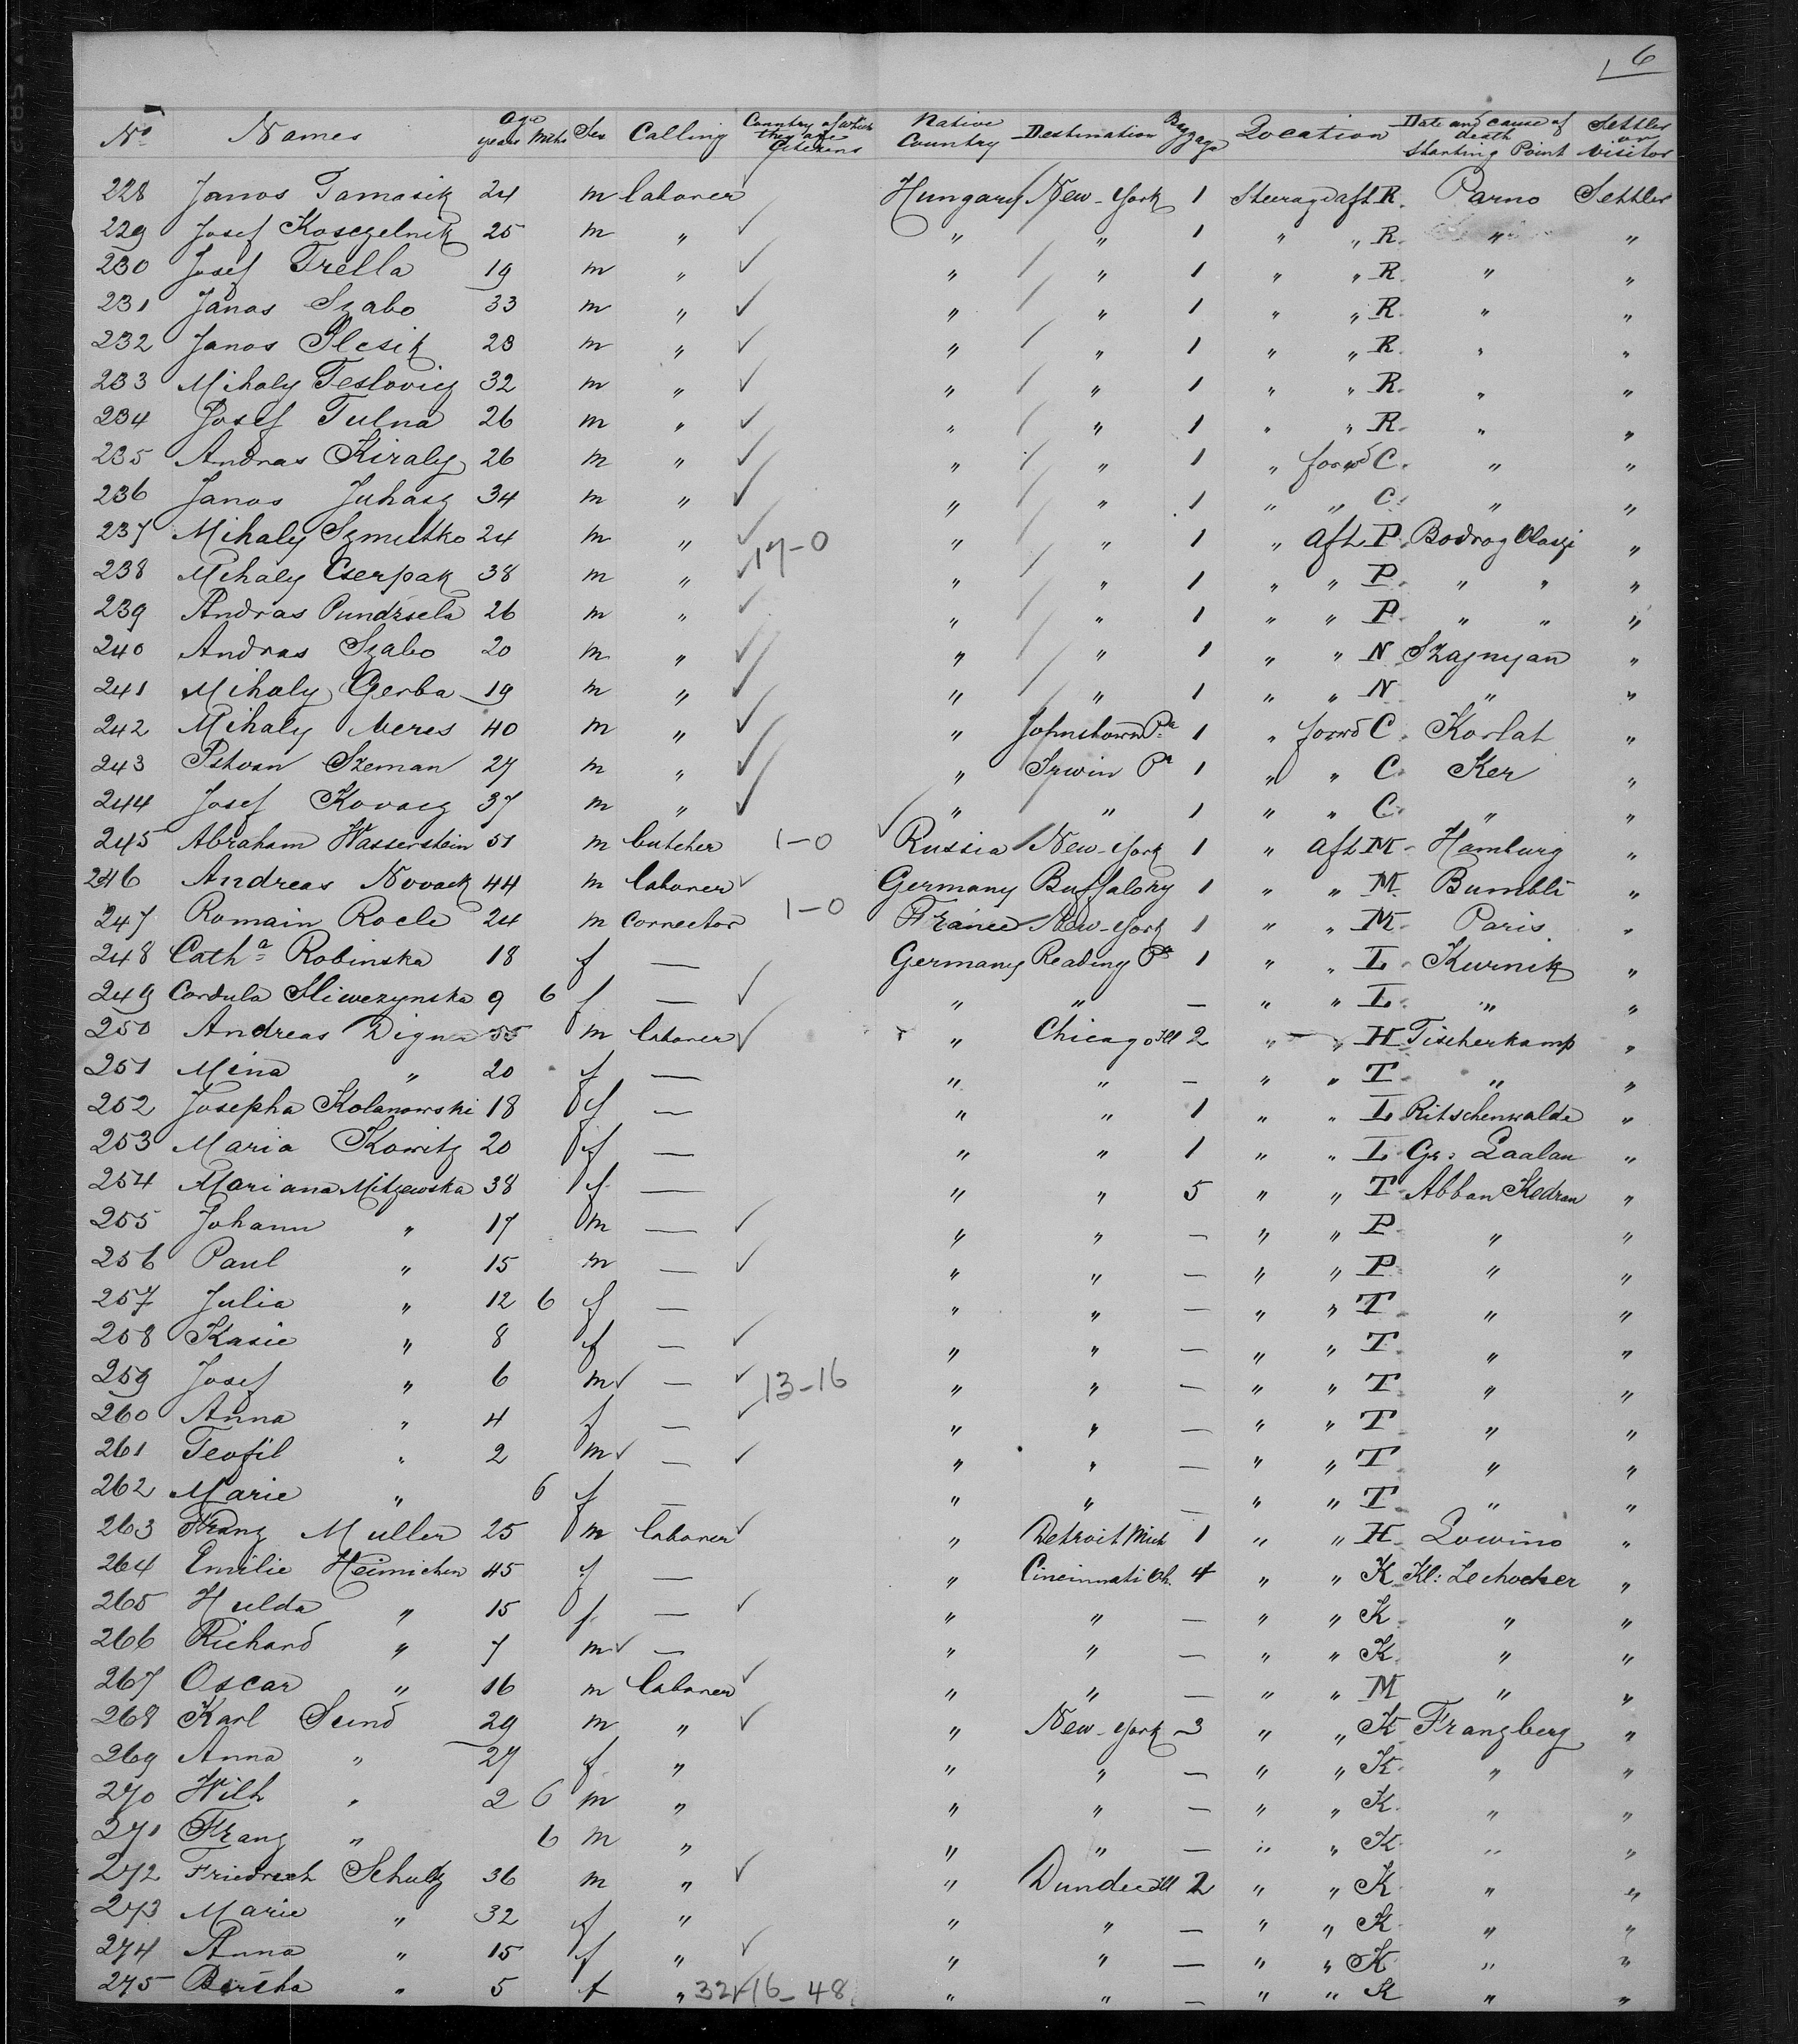 6
No Names Age years Mths Sex Calling Country of which they are Citizens Native Country Destination Baggage Location Date and cause of death Starting Point Settler or Visitor
228 Janos Tamasik 24 m laborer Hungary New-York 1 Steerage aft R. Parno Settler
229 Josef Kosezelnik 25 m " " " 1 " " R. " "
230 Josef Trella 19 m " " " 1 " " R. " "
231 Janos Szabo 33 m " " " 1 " " R. " "
232 Janos 28 m " " " 1 " " R. " "
233 Mihaly Teslovicz 32 m " " " 1 " " R. " "
234 Josef Tulna 26 m " " " 1 " " R. " "
235 Andras Kiraly 26 m " " " 1 " forwd C. " "
236 Janos Juhasz 34 m " " " 1 " " C. " "
237 Mihaly Szmeltko 24 m " 17-0 " " 1 " aft P. Bodrog Olaszi "
238 Mihaly Cserpak 38 m " " " 1 " " P. " " "
239 Andras 26 m " " " 1 " " P. " " "
240 Andras Szabo 20 m " " " 1 " " N Szagnyan "
241 Mihaly Gerba 19 m " " " 1 " " N " "
242 Mihaly Veres 40 m " " Johnstown Pa 1 " forwd C. Korlat "
243 Istvan Szeman 27 m " " Irwin Pa 1 " " C. Ker "
244 Josef Kovacz 37 m " " " 1 " " C. " "
245 Abraham Wasserstein 51 m butcher 1-0 Russia New-York 1 " aft M. Hamburg "
246 Andreas Novack 44 m laborer Germany Buffalo ny 1 " " M. Bumbli "
247 Romain Rocle 24 m corrector 1-0 France New-York 1 " " M. Paris "
248 Catha Robinska 18 f — Germany Reading Pa 1 " " L. Kurnik "
249 Cordula Sliwczynska 9 6 f — " " — " " L. " "
250 Andreas 55 m laborer " Chicago Ill 2 " " H Tischerkamp "
251 Mina " 20 f — " " — " " T. " "
252 Josepha Kolanowski 18 f — " " 1 " " L Ritschenwalde "
253 Maria Kowitz 20 f — " " 1 " " L Gr: "
254 Mariana Mitzewska 38 f — " " 5 " " T. Abban Kedran "
255 Johann " 17 m — " " — " " P. " "
256 Paul " 15 m — " " — " " P. " "
257 Julia " 12 6 f — " " — " " T " "
258 Kasie " 8 f — " " — " " T. " "
259 Josef " 6 m — 13-16 " " — " " T " "
260 Anna " 4 f — " " — " " T " "
261 Teofil " 2 m — " " — " " T " "
262 Marie " 6 f — " " — " " T " "
263 Franz Muller 25 m laborer " Detroit Mich 1 " " H. Lowino "
264 Emilie Heinichen 45 f — " Cincinnati Oh. 4 " " K Kl: "
265 Hulda " 15 f — " " — " " K " "
266 Richard " 7 m — " " — " " K " "
267 Oscar " 16 m laborer " " — " " M " "
268 Karl Sund 29 m " " New-York 3 " " K Franzberg "
269 Anna " 27 f " " " — " " K " "
270 Wilh " 2 6 m " " " — " " K. " "
271 Franz " 6 m " " " — " " K " "
272 Friedrich Schultz 36 m " " Dundee Ill 2 " " K " "
273 Marie " 32 f " " " — " " K " "
274 Anna " 15 f " " " — " " K " "
275 Bertha " 5 f " 32+16-48 " " — " " K " "